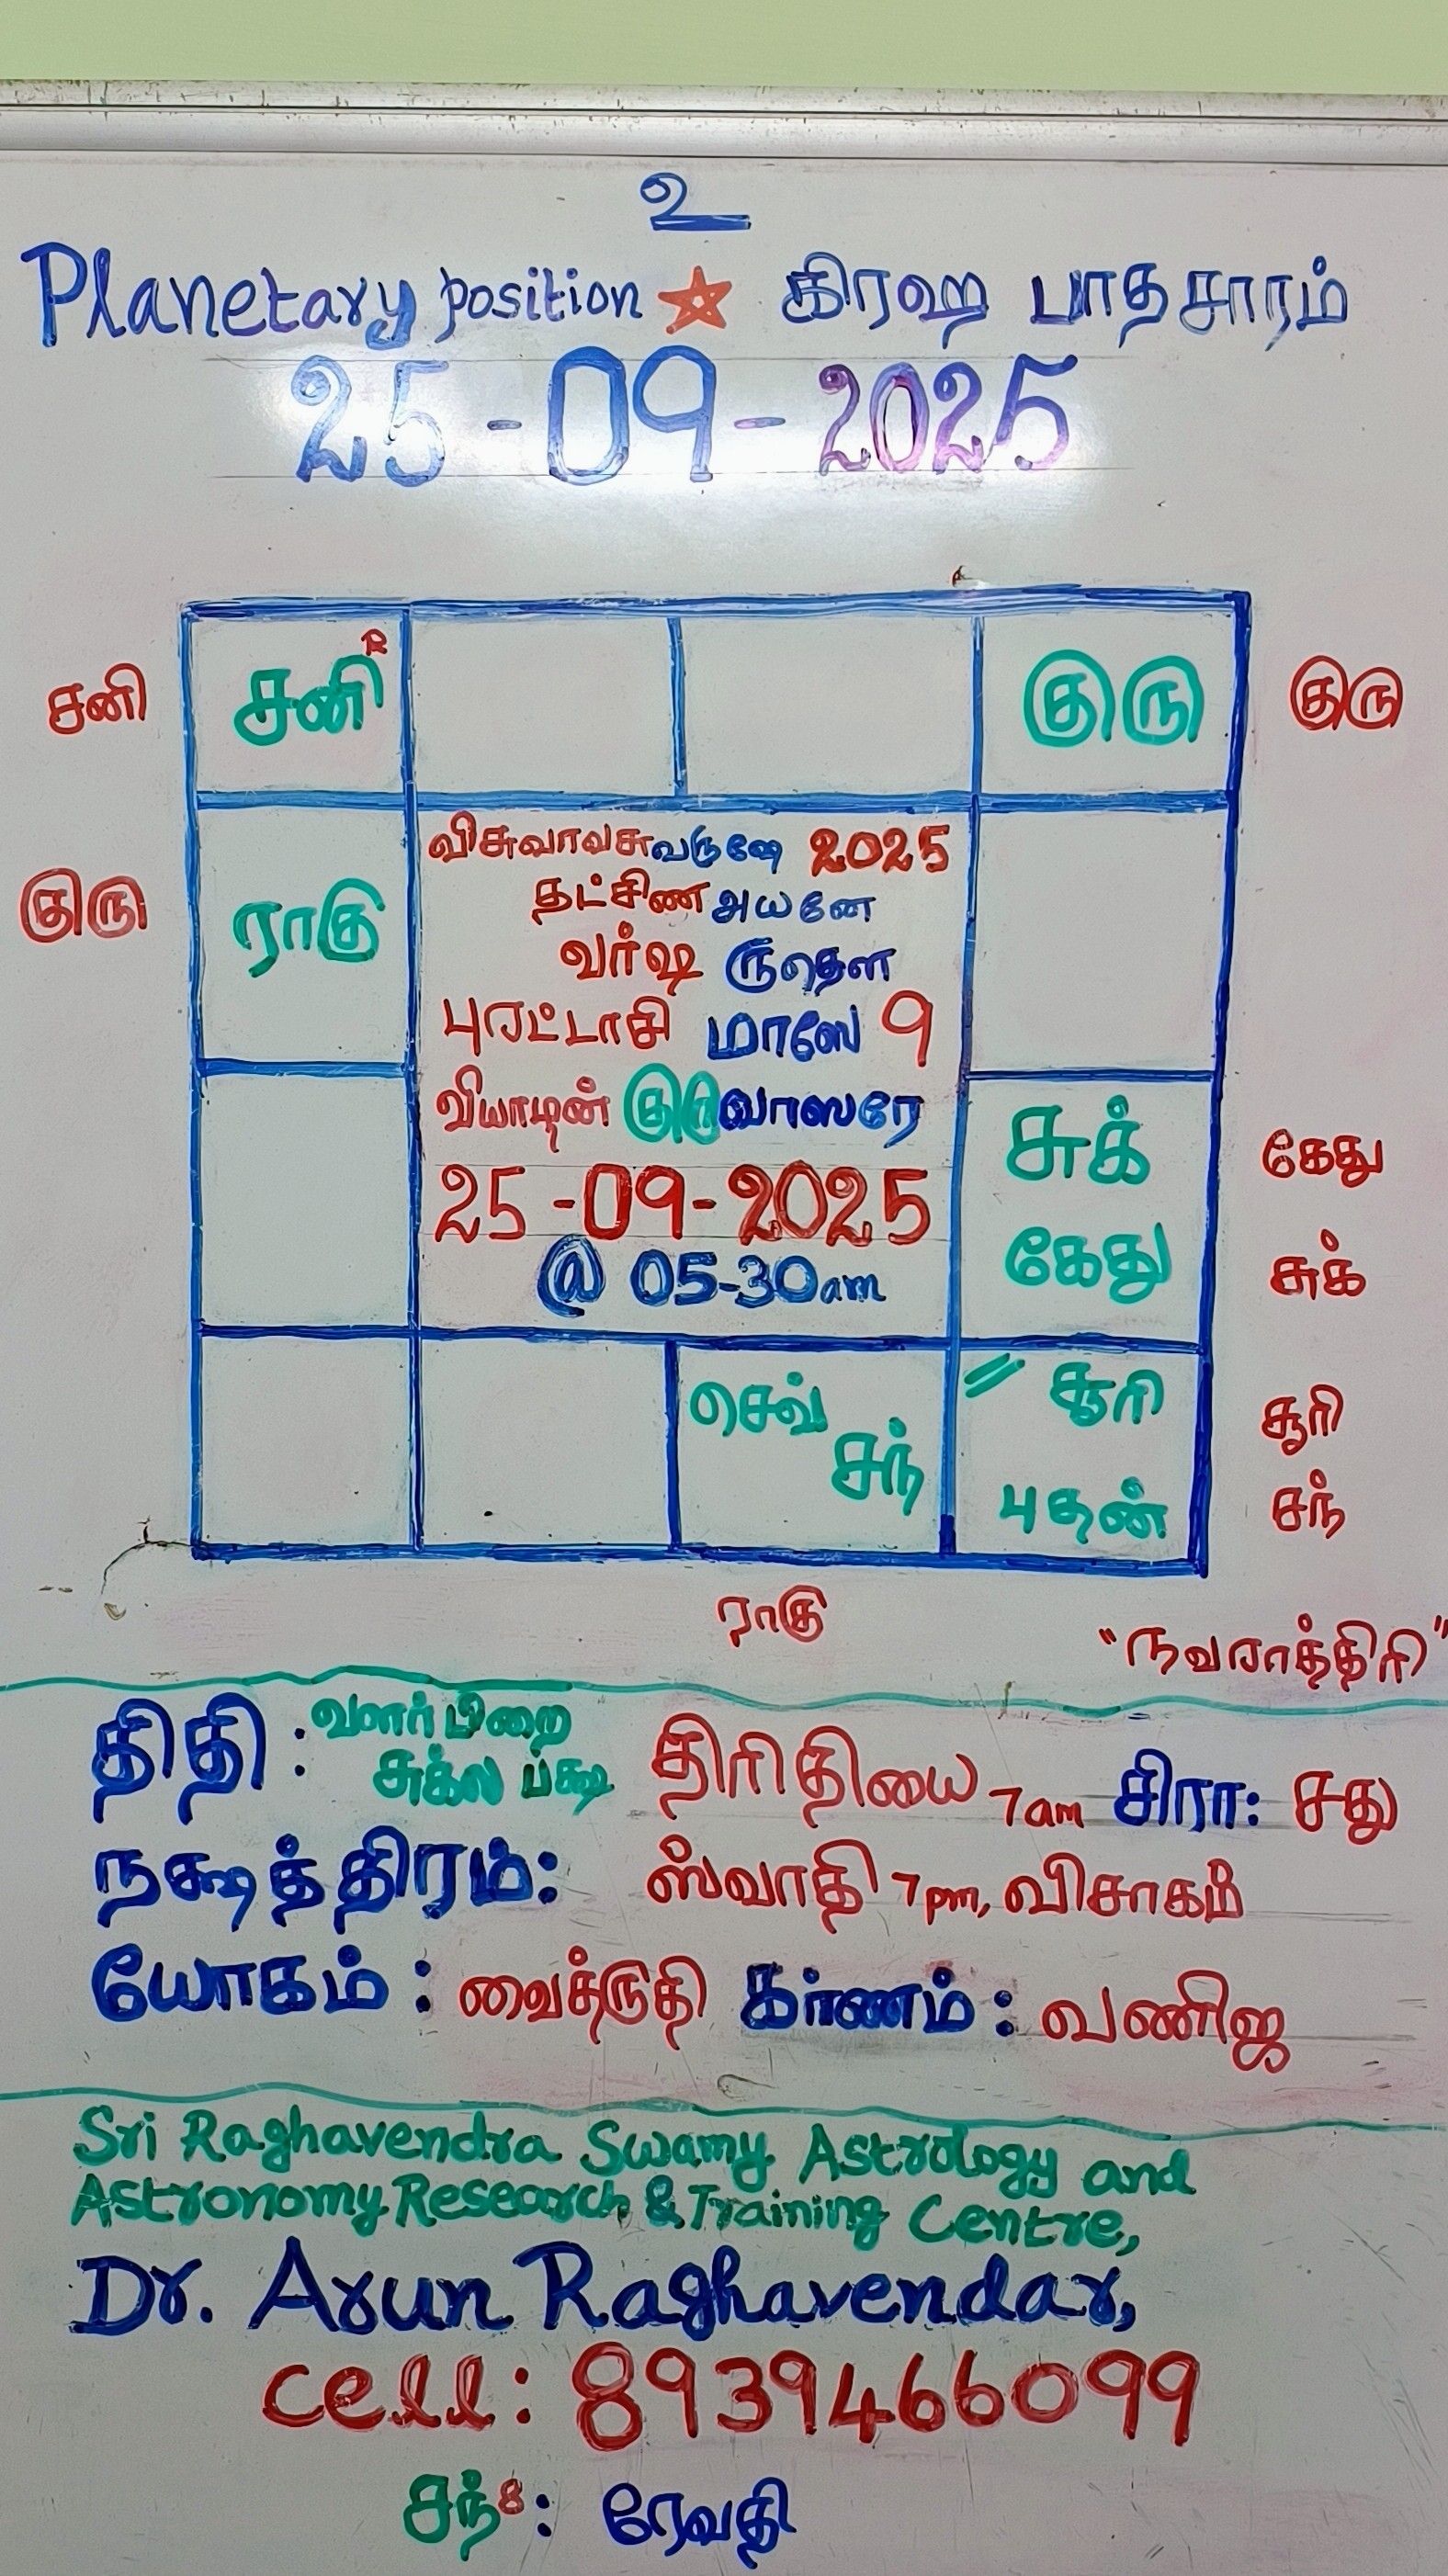 உ
Planetary position கிரஹ பாதசாரம்
25-09-2025
சனி சனி R குரு குரு
விசுவாவசுவருஷே 2025
தட்சிண அயனே
குரு ராகு வர்ஷ ருதௌ
புரட்டாசி மாஸே 9
வியாழன் குருவாஸரே
சுக் கேது
25-09-2025
கேது சுக்
@ 05-30am
செவ் சூரி சூரி
சந் புதன் சந்
ராகு
"நவராத்திரி"
திதி : வளர்பிறை
சுக்ல பக்ஷ திரிதியை 7am சிரா: சது
நக்ஷத்திரம்: ஸ்வாதி 7pm, விசாகம்
யோகம் : வைத்ருதி கர்ணம் : வணிஜ
Sri Raghavendra Swamy Astrology and
Astronomy Research & Training Centre,
Dr. Arun Raghavendar,
cell: 8939466099
சந்8: ரேவதி